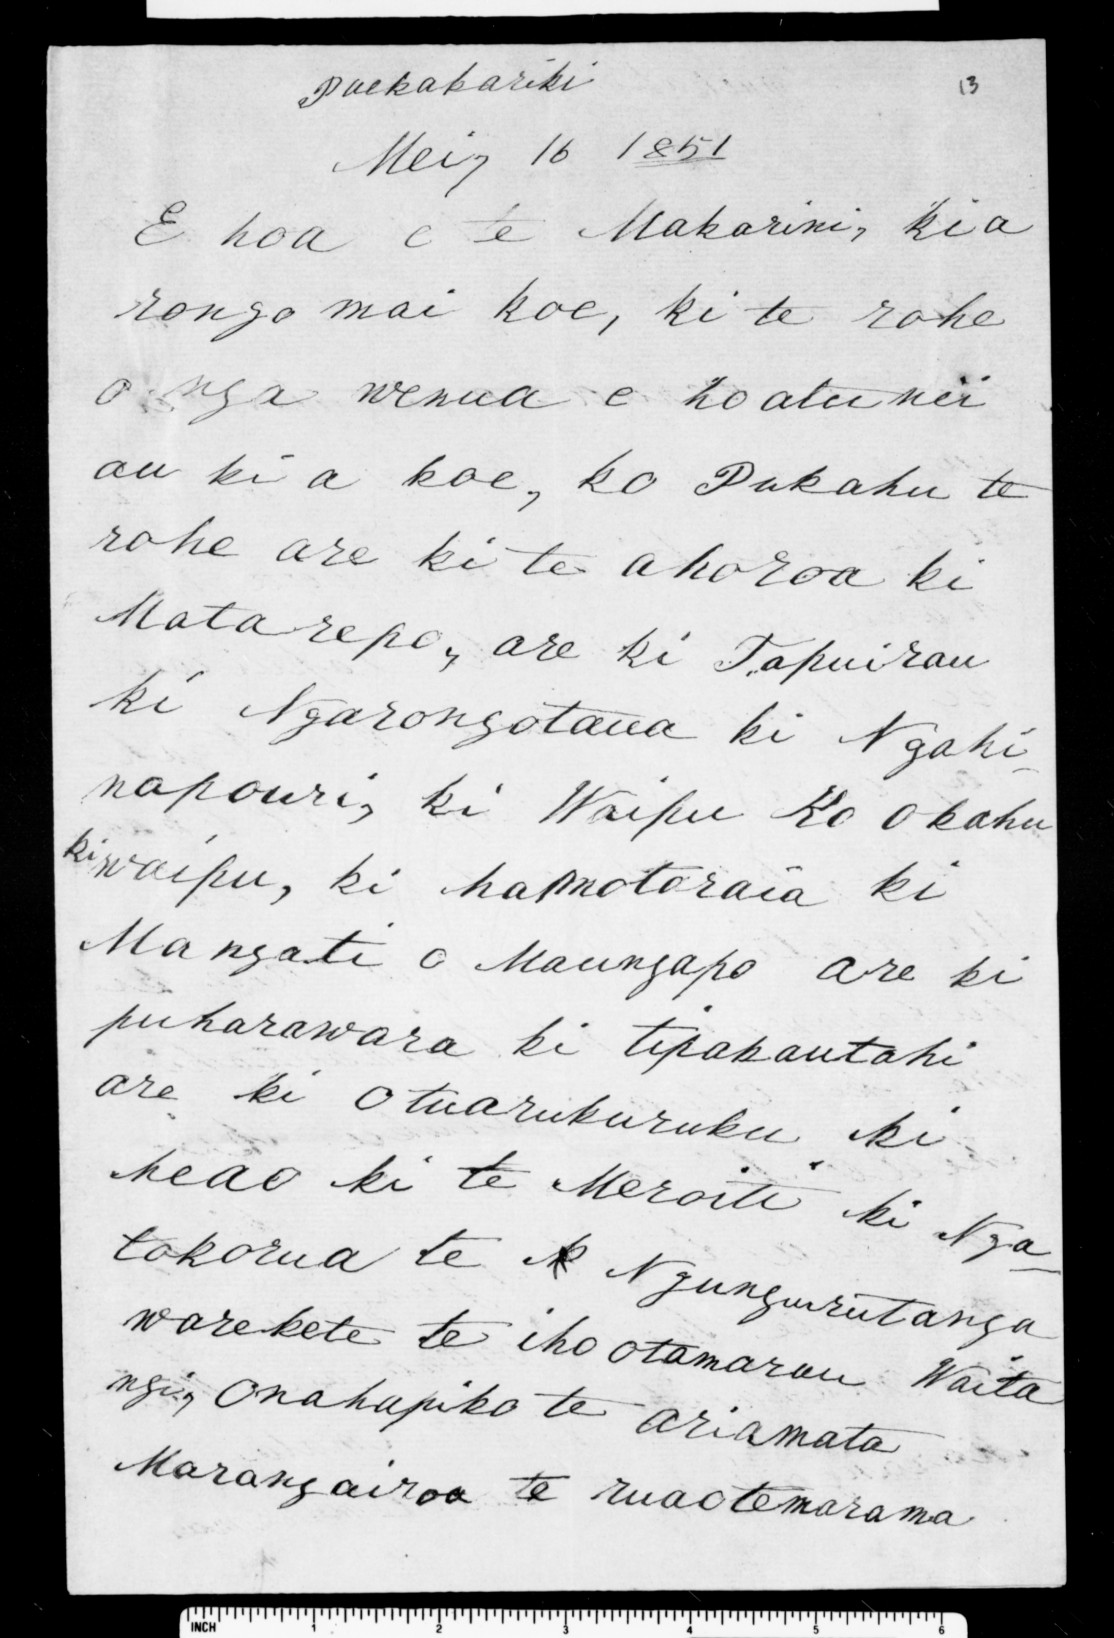 Paekakariki
13
Mei, 16 1851
E hoa e te Makarini, kia
rongo mai koe, ki te rohe
o nga wenua e ho atu nei
au ki a koe, ko Pukahu te
rohe are ki te ahoroa ki
Matarepo, are ki Tapuirau
ki Ngarongotaua ki Ngahi-
napouri, ki Waipu Ko Okahu
ki waipu, ki hamotoraia ki
Mangati o Maungapo are ki
puharawara ki tipakautahi
are ki Otuarukuruku ki
heao ki te Meroiti ki Nga-
tokorua te Ngungurutanga
warekete te iho otamarau Waita
ngi, Onahapiko te ariamata
Marangairoa te ruaotemarama
INCH 1 2 3 4 5 6